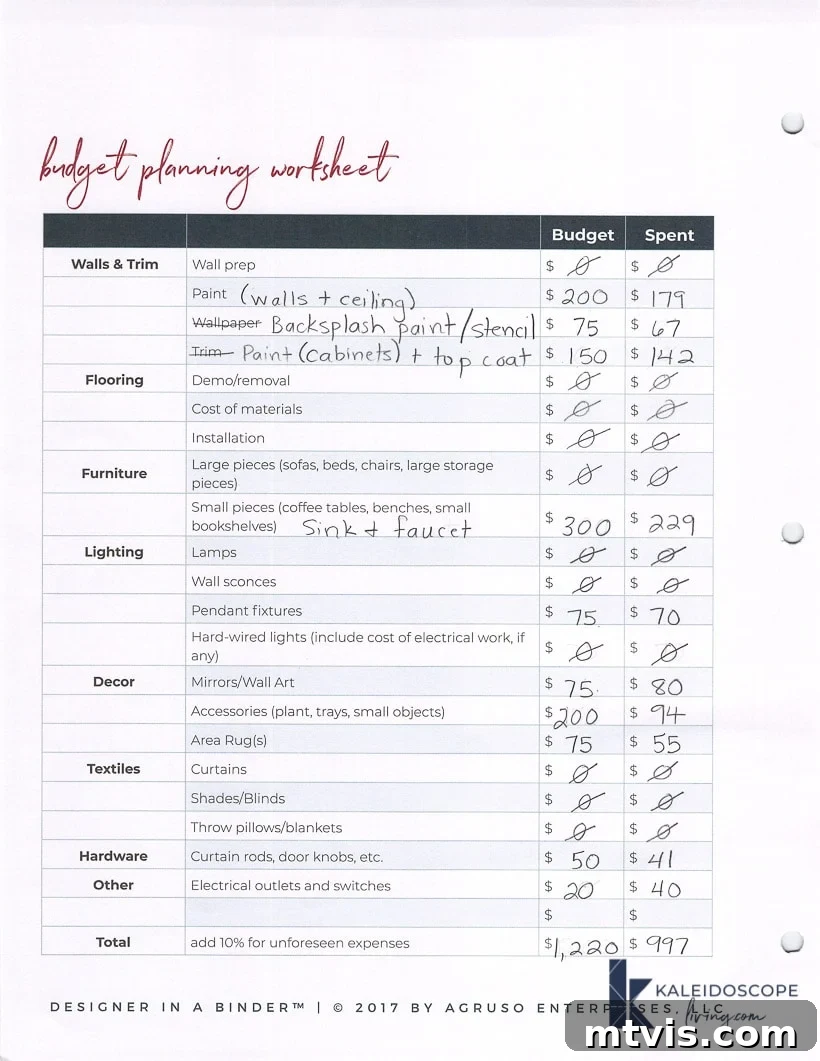 budget planning worksheet
Budget Spent
Walls & Trim Wall prep $ 0 $ 0
Paint (walls + ceiling) $ 200 $ 179
Wallpaper Backsplash paint/stencil $ 75 $ 67
Trim Paint (cabinets) + top coat $ 150 $ 142
Flooring Demo/removal $ 0 $ 0
Cost of materials $ 0 $ 0
Installation $ 0 $ 0
Furniture Large pieces (sofas, beds, chairs, large storage
pieces) $ 0 $ 0
Small pieces (coffee tables, benches, small
bookshelves) Sink + faucet $ 300 $ 229
Lighting Lamps $ 0 $ 0
Wall sconces $ 0 $ 0
Pendant fixtures $ 75 $ 70
Hard-wired lights (include cost of electrical work, if
any) $ 0 $ 0
Decor Mirrors/Wall Art $ 75 $ 80
Accessories (plant, trays, small objects) $ 200 $ 94
Area Rug(s) $ 75 $ 55
Textiles Curtains $ 0 $ 0
Shades/Blinds $ 0 $ 0
Throw pillows/blankets $ 0 $ 0
Hardware Curtain rods, door knobs, etc. $ 50 $ 41
Other Electrical outlets and switches $ 20 $ 40
$ $
Total add 10% for unforeseen expenses $1,220 $ 997
DESIGNER IN A BINDER™ | © 2017 BY AGRUSO ENTERPRISES, LLC
K KALEIDOSCOPE
living.com
mtvis.com